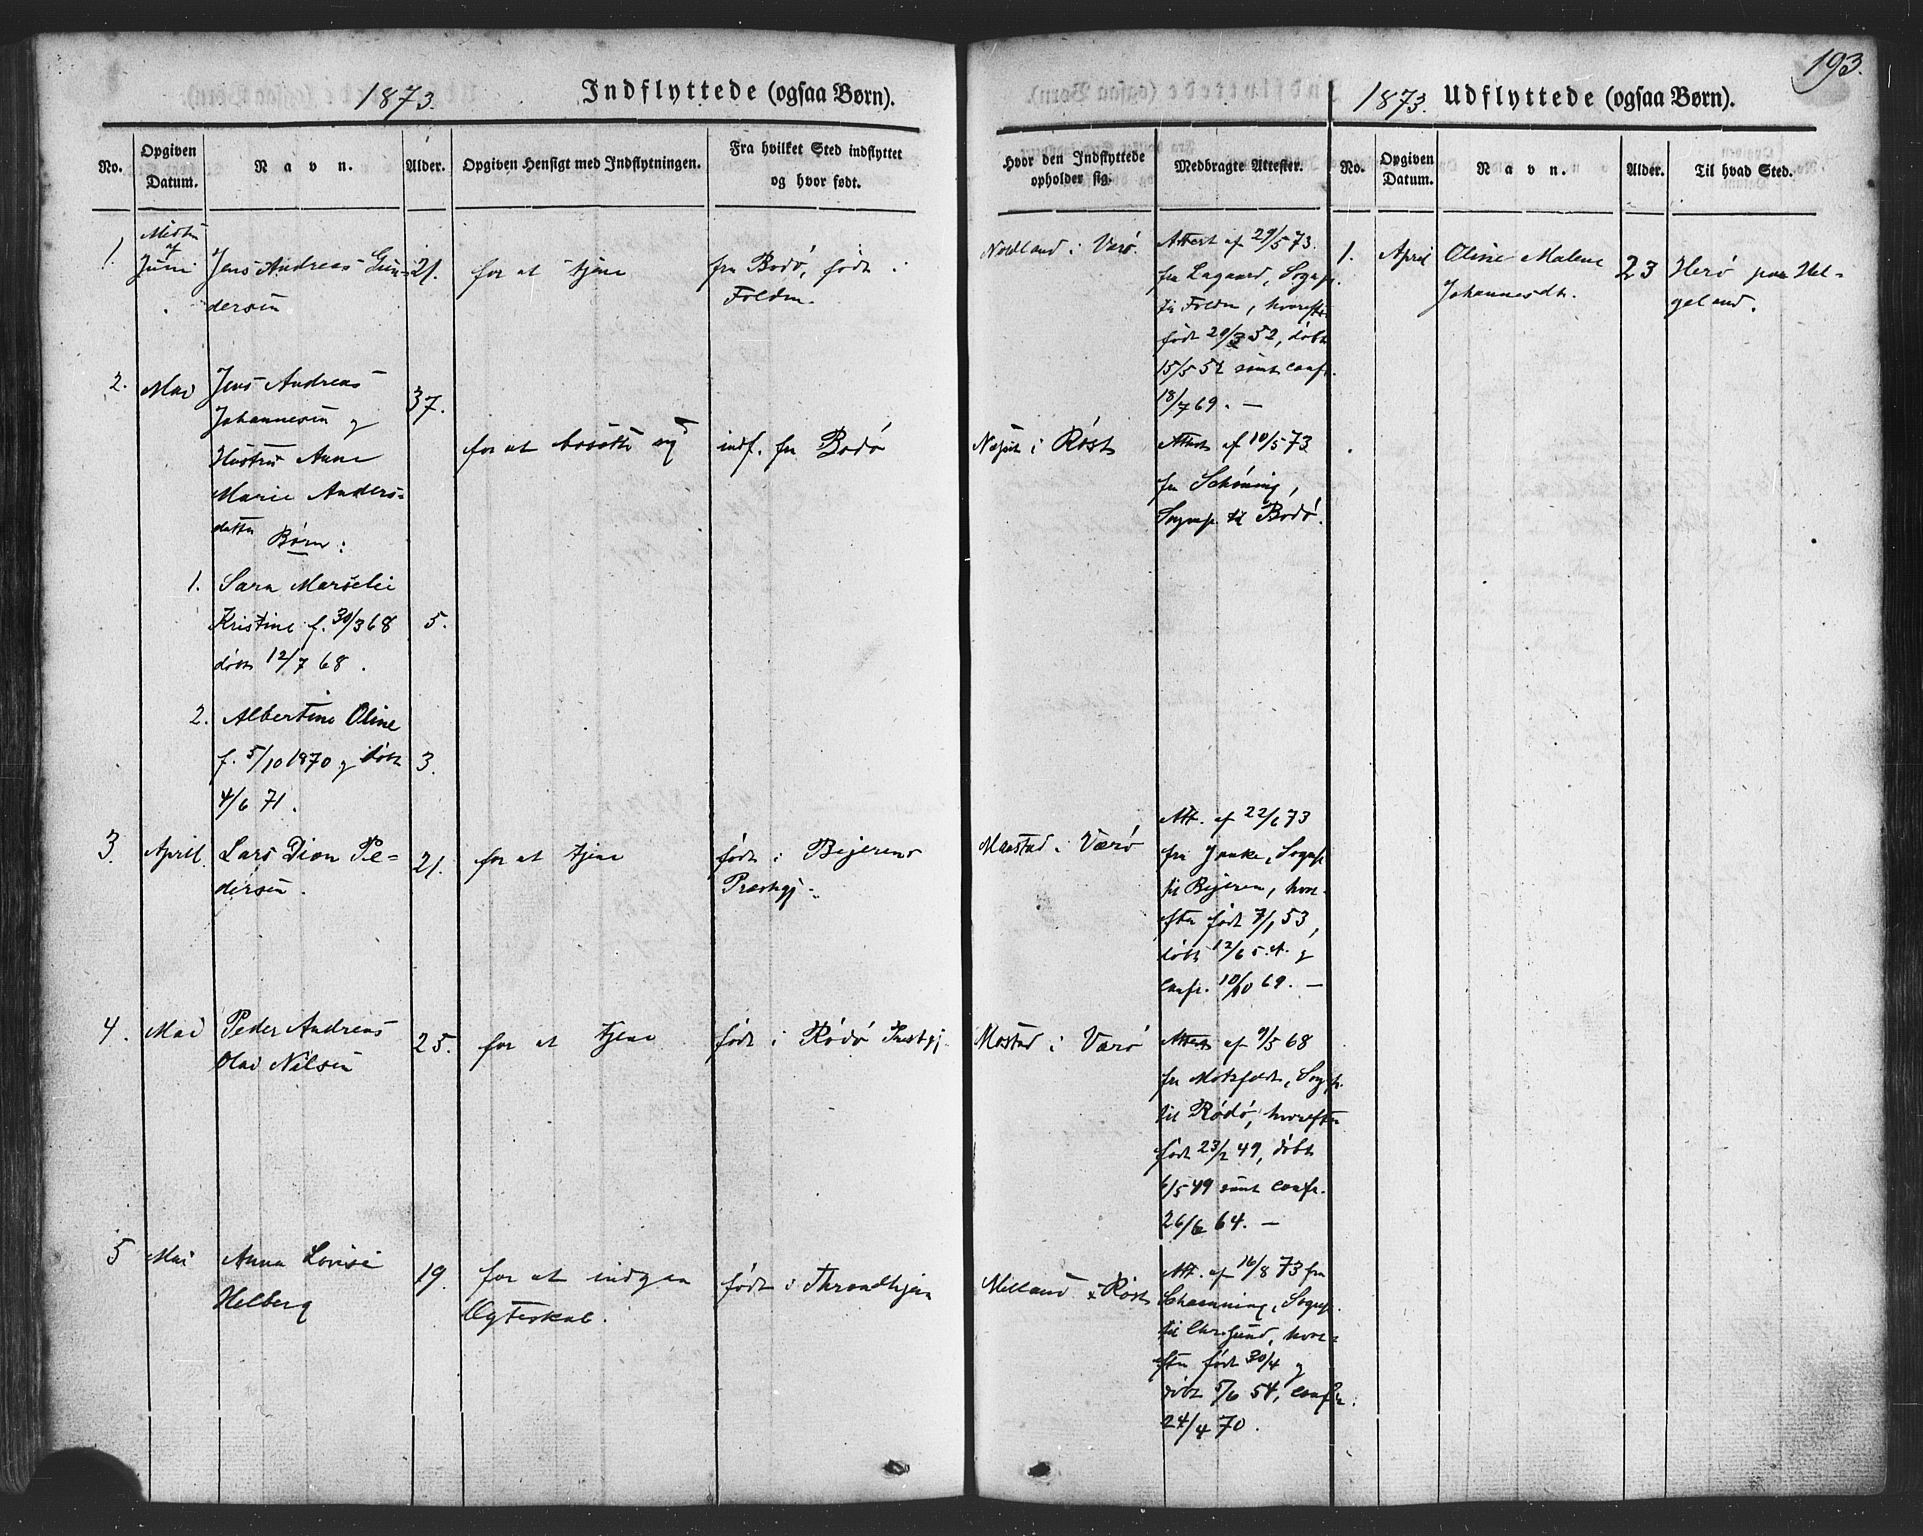 193.
1873.
Indflyttede (ogsaa Børn).
No.
Opgiven Datum.
Navn.
Alder.
Opgiven Hensigt med Indflytningen.
Fra hvilket Sted indflyttet
og hvor født.
1.
Midten
af
Juni
Jens Andreas Gun-
dersen
21.
for at tjene
fra Bodø, født i
Folden.
2.
Mai
Jens Andreas
Johannesen og
Hustru Anne
Marie Anders-
datter
Børn:
37.
for at bosætte sig
indf. fra Bodø
1. Sara Marselie
Kristine f. 30/3 68
døbt 12/7 68.
5.
2. Albertine Oline
f. 5/10 1870 og døbt
4/6 71.
3.
3.
April
Lars Dion Pe-
dersen.
21.
for at tjene
født i Bejerens
Præstegj.
4.
Mai
Peder Andreas
Olai Nilsen
25.
for at tjene
født i Rødø Præstgj.
5
Mai
Anna Lovise
Helberg
19.
for at indgaa
Ægteskab.
født i Throndhjem
Hvor den Indflyttede
opholder sig.
Medbragte Attester.
Nordland i Værø.
Attest af 29/5 73.
fra Lagaard, Sognep.
til Folden, hvorefter
født 20/3 52, døbt
15/5 52 samt conf.
18/7 69. —
i Røst
Attest af 10/5 73
fra Schøning,
Sognep. til Bodø.
Maastad i Værø
Att. af 22/6 73
fra Sognep.
til Bejeren, hvor-
efter født 7/1 53,
døbt 12/6 s. A. og
Conf. 10/10 69. —
Mostad i Værø
Attest af 9/5 68
fra Motzfeldt, Sognep.
til Rødø, hvorefter
født 23/2 49, døbt
6/5 49 samt Confr.
26/6 64. —
i Røst
Att. af 16/8 73 fra
Sognep.
til Chr.sund, hvor-
efter født 30/4 og
døbt 5/6 54, Confr.
24/4 70.
1873.
Udflyttede (ogsaa Børn).
No.
Opgiven
Datum.
Navn.
Alder.
Til hvad Sted.
1.
April
Oline Malene
Johannesdt.
23
Herø paa Hel-
geland.